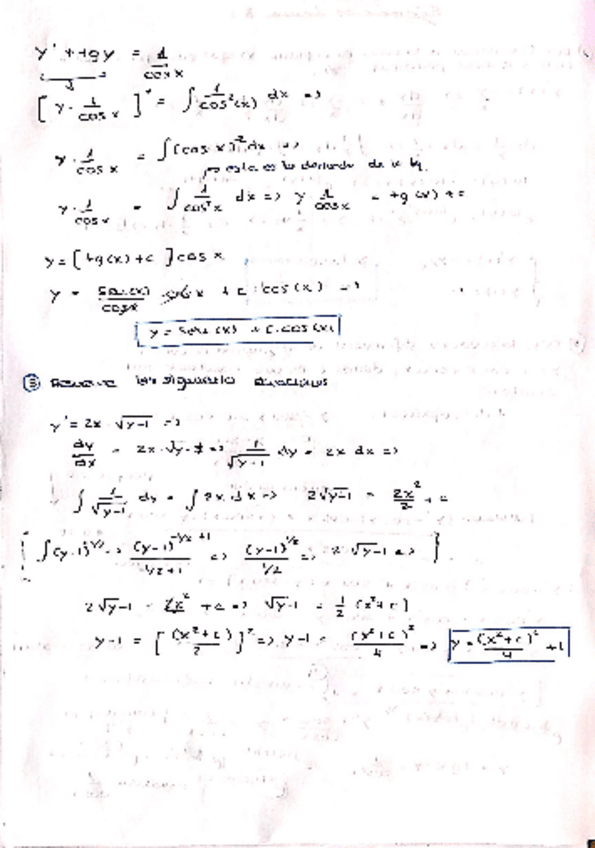 y' + tg y = 1/cos x
[y · 1/cos x]' = ∫ 1/cos²(x) dx =>
y · 1/cos x = ∫(cos x)^-2 dx =>
esta es la derivada de la tg.
y · 1/cos x = ∫ 1/cos² x dx => y 1/cos x = tg(x) + c
y = [tg(x) + c] cos x
y = sen(x)/cos x · cos x + c · cos(x) =>
y = sen(x) + c · cos(x)
③ Resolver las siguientes ecuaciones
y' = 2x · √y-1 =>
dy/dx = 2x · √y-1 => 1/√y-1 dy = 2x dx =>
∫ 1/√y-1 dy = ∫ 2x · dx => 2√y-1 = 2x²/2 + c
[∫(y-1)^-1/2 => (y-1)^-1/2+1 / -1/2+1 => (y-1)^1/2 / 1/2 => 2 · √y-1 =>]
2√y-1 = 2x²/2 + c => √y-1 = 1/2 (x²+c)
y-1 = [(x²+c)/2]² => y-1 = (x²+c)²/4 => y = (x²+c)²/4 + 1